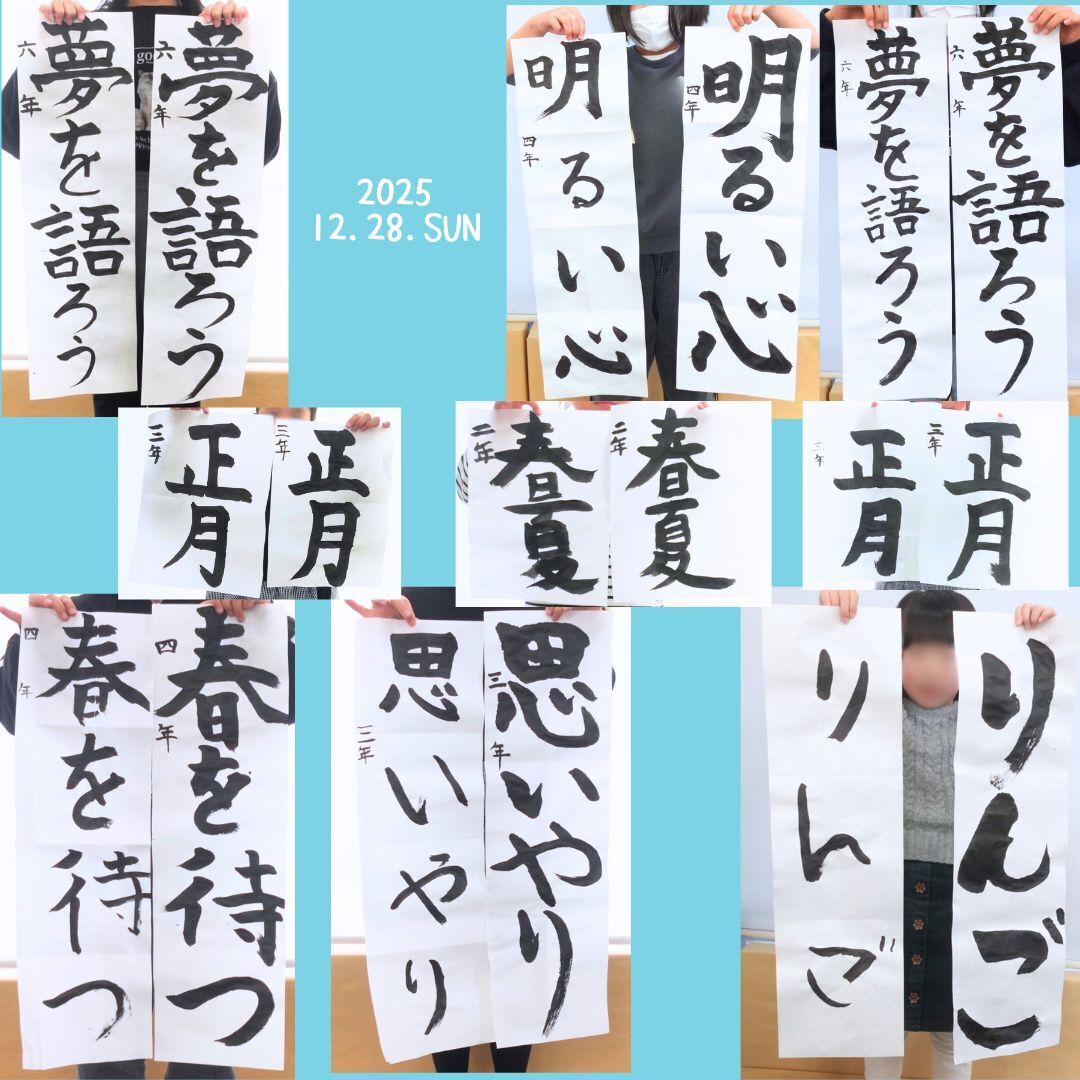 夢を語ろう
六年
夢を語ろう
六年
2025
12.28.SUN
明るい心
四年
明るい心
四年
夢を語ろう
六年
夢を語ろう
六年
正月
三年
正月
三年
春夏
二年
春夏
二年
正月
三年
正月
三年
春を待つ
四年
春を待つ
四年
思いやり
三年
思いやり
三年
りんご
りんご